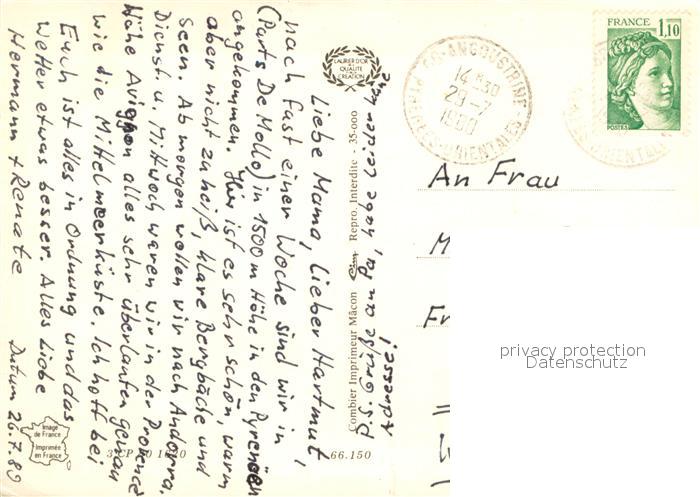 Liebe Mama, Lieber Hartmut,
nach fast einer Woche sind wir in
(Parts De Mollo) in 1500m Höhe in den Pyrenäen
angekommen. Hier ist es sehr schön, warm
aber nicht zu heiß, klare Bergbäche und
Seen. Ab morgen wollen wir nach Andorra.
Dienst. u. Mittwoch waren wir in der Provence
Nähe Avignon alles sehr überlaufen genau
wie die Mittelmeerküste. Ich hoff bei
Euch ist alles in Ordnung und das
Wetter etwas besser. Alles Liebe
Hermann + Renate Datum 26.7.80
P.S. Grüße an Pa, habe leider keine
Adresse!
LAURIER D'OR
DE LA
QUALITÉ
CRÉATION
Combier Imprimeur Mâcon Cim Repro. Interdite - 35-000
Image
de France
Imprimée
en France
66.150
66-ANGOUSTRINE
14 H 30
28-7
1980
PYRÉNÉES-ORIENTALES
FRANCE
1,10
POSTES
An Frau
M
Fr
privacy protection
Datenschutz